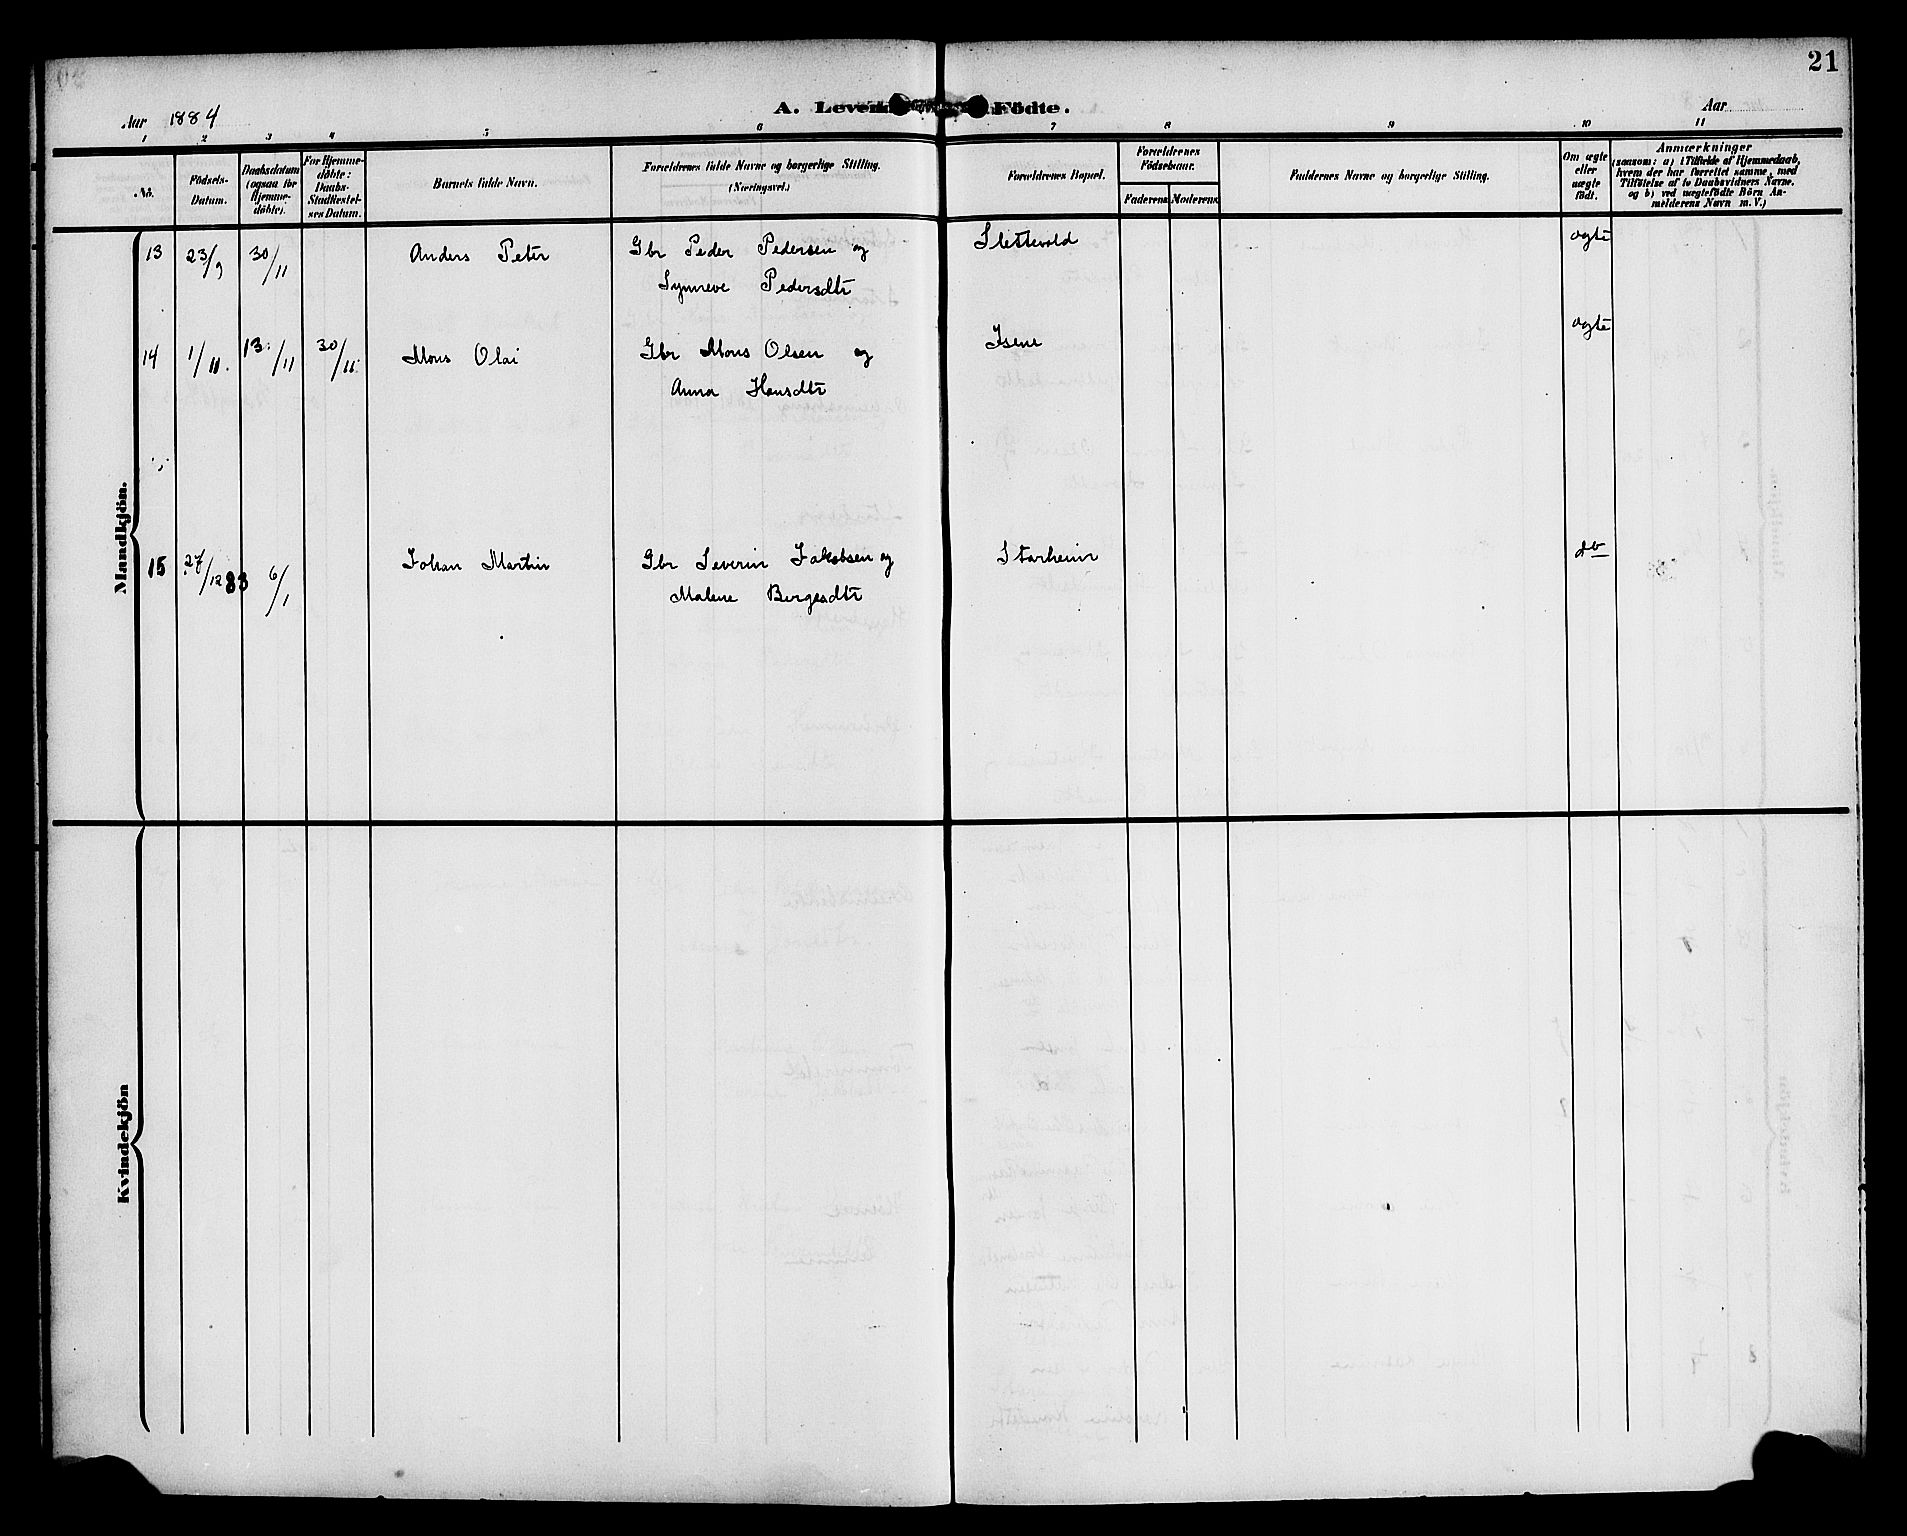 21
A. Levende Födte.
Aar 1884
Aar
1 2 3 4 5 6 7 8 9 10 11
No.
Födsels-Datum.
Daabsdatum (ogsaa for Hjemme-döbte).
For Hjemme-döbte: Daabs-Stadfæstel-ses Datum.
Barnets fulde Navn.
Forældrenes fulde Navne og borgerlige Stilling.
(Næringsvei.)
Forældrenes Bopæl.
Forældrenes Födselsaar.
Faderens Moderens
Faddernes Navne og borgerlige Stilling.
Om ægte eller uægte födt.
Anmærkninger
(saasom: a) i Tilfælde af Hjemmedaab,
hvem der har forrettet samme, med
Tilföielse af to Daabsvidners Navne.
og b) ved uægtefödte Börn An-
melderens Navn m. V.)
Mandkjön.
13 23/9 30/11 Anders Peter Gbr Peder Pedersen og Slettevold ægte
Synneve Pedersdtr
14 1/11. 13/11 30/11. Mons Olai Gbr Mons Olsen og Isene ægte
Anna Hansdtr
15 27/12 83 6/1 Johan Martin Gbr Severin Jakobsen og Starheim do
Malene Børgesdtr
Kvindekjön